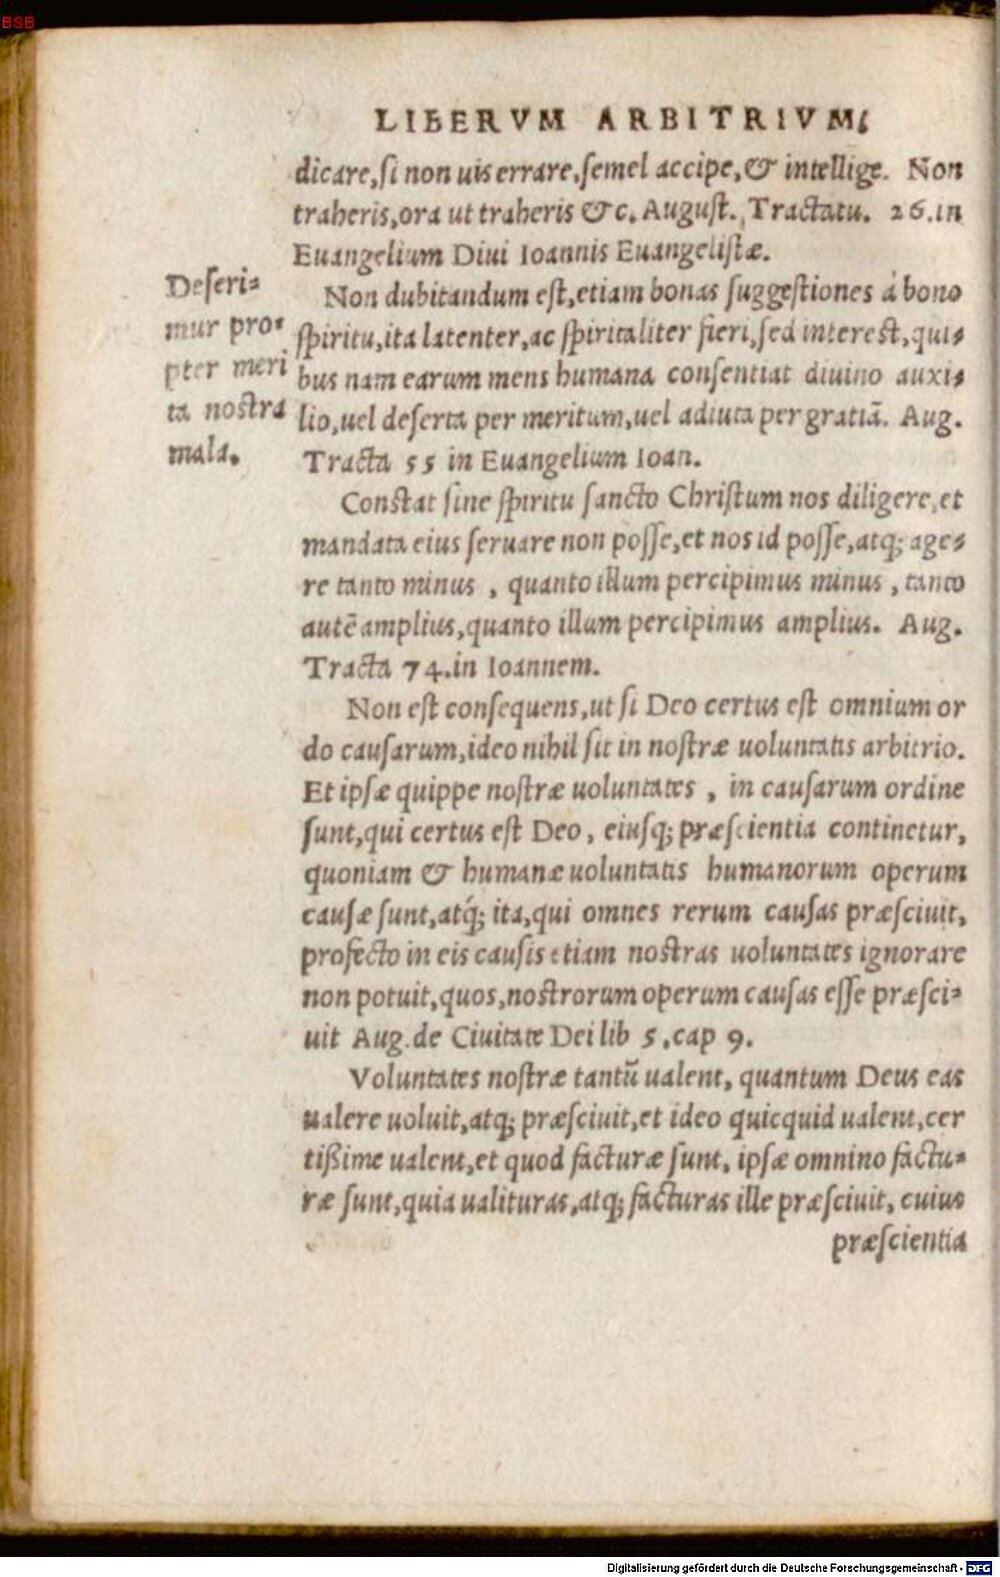 BSB
LIBERVM ARBITRIVM.
dicare, si non uis errare, semel accipe, & intellige. Non
traheris, ora ut traheris &c. August. Tractatu. 26. in
Euangelium Diui Ioannis Euangelistæ.
Deseri-
mur pro-
pter meri
ta nostra
mala.
Non dubitandum est, etiam bonas suggestiones á bono
spiritu, ita latenter, ac spiritaliter fieri, sed interest, qui-
bus nam earum mens humana consentiat diuino auxi-
lio, uel deserta per meritum, uel adiuta per gratiã. Aug.
Tracta 55 in Euangelium Ioan.
Constat sine spiritu sancto Christum nos diligere, et
mandata eius seruare non posse, et nos id posse, atq; age-
re tanto minus, quanto illum percipimus minus, tanto
autẽ amplius, quanto illum percipimus amplius. Aug.
Tracta 74. in Ioannem.
Non est consequens, ut si Deo certus est omnium or
do causarum, ideo nihil sit in nostræ uoluntatis arbitrio.
Et ipsæ quippe nostræ uoluntates, in causarum ordine
sunt, qui certus est Deo, eiusq; præscientia continetur,
quoniam & humanæ uoluntatis humanorum operum
causæ sunt, atq́; ita, qui omnes rerum causas præsciuit,
profecto in eis causis etiam nostras uoluntates ignorare
non potuit, quos, nostrorum operum causas esse præsci-
uit Aug. de Ciuitate Dei lib 5. cap 9.
Voluntates nostræ tantũ ualent, quantum Deus eas
ualere uoluit, atq; præsciuit, et ideo quicquid ualent, cer
tißime ualent, et quod facturæ sunt, ipsæ omnino factu-
ræ sunt, quia ualituras, atq; facturas ille præsciuit, cuius
præscientia
Digitalisierung gefördert durch die Deutsche Forschungsgemeinschaft - DFG